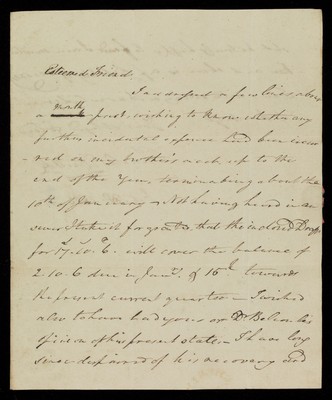 Esteemed Friend
I addressed a few lines about
a month past, wishing to know whether any
further incidental expence had been incur
-red on my brother's acct. up to the
end of the Year, terminating about the
10th of January & Not having heard in an
swer I take it for granted, that the inclosed Draft
for 17.10.6. will cover the balance of
2.10.6 due in Janry. & 15£ towards
the present current quarter — I wished
also to have had yours or Dr Belcombe's
opinion of his present state. I have long
since despaired of his recovery and